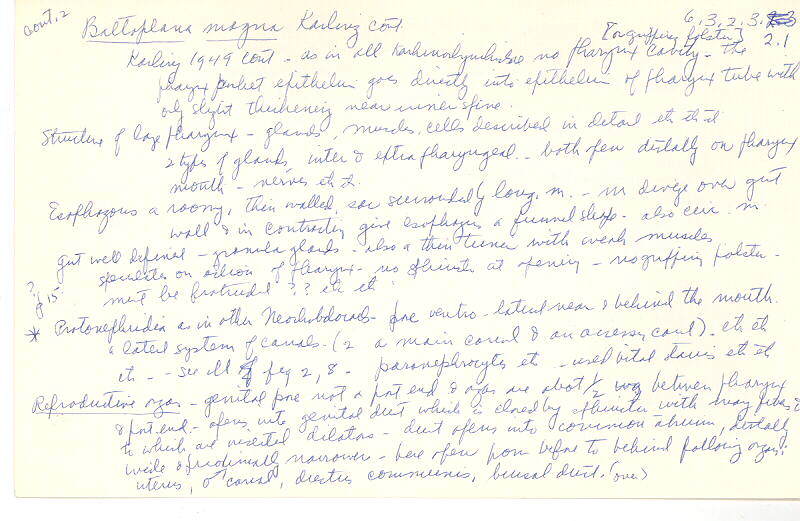 cont. 2 Baltoplana magna Karling cont. 6.3.2.3.
[no gripping polster] 2.1
Karling 1949 cont - as in all Karkinorhynchidae no pharynx cavity - the
pharynx pocket epithelium goes directly into epithelium of pharynx tube with
only slight thickening near inner spine.
Structure of large pharynx - glands, muscles, cells described in detail etc etc
2 types of glands, inter & extrapharyngeal - both open distally on pharynx
mouth - nerves etc
Esophagous a roomy, thin walled, sac surrounded by long. m. - m diverge over gut
wall & in contraction give esophagus a funnel shape - also circ. m.
gut well defined - granula glands - also a thin tunica with weak muscles
? speculates on action of pharynx - no sphincter at opening - no gripping polster -
fig 15. must be protruded ?? etc etc
* Protonephridia as in other Neorhabdocoels - pore ventro-lateral near & behind the mouth.
a lateral system of canals - (2 a main canal & an accessory canal) - etc etc
etc - - see ill of fig 2, 8 - paranephrocytes etc - used vital stains etc etc
Reproductive organ - genital pore not at post end & organs are about 1/2 way between pharynx
& post. end. - opens into genital duct which is closed by sphincter with many fibers &
to which are inserted dilators - duct opens into common atrium, distally
wide & proximally narrower - here open from before to behind following organs:
uterus, ♂ canal, ductus communis, bursal duct. (over)